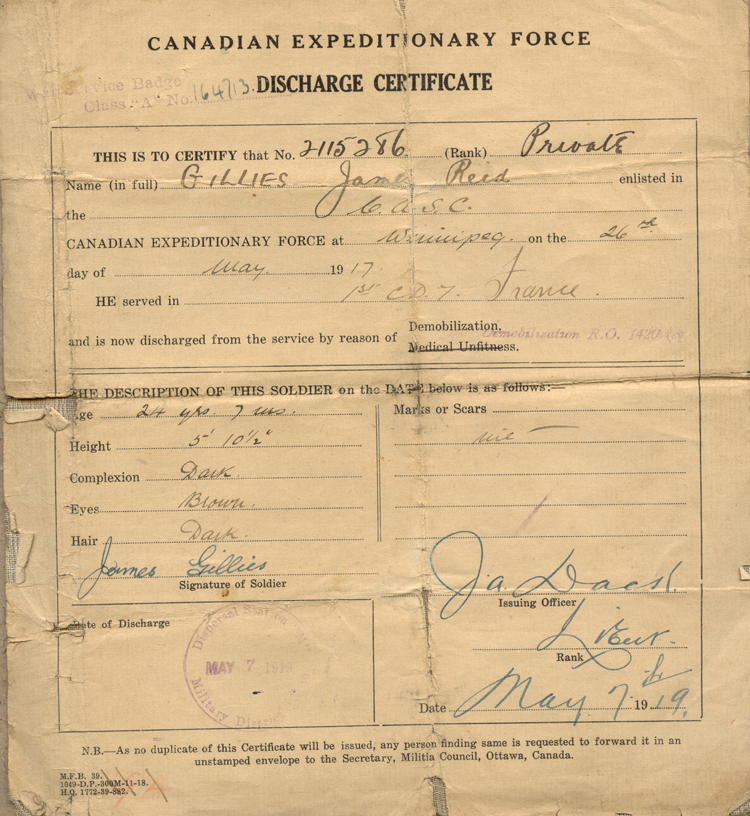 CANADIAN EXPEDITIONARY FORCE
DISCHARGE CERTIFICATE
War Service Badge
Class "A" No. 164713.
THIS IS TO CERTIFY that No. 2115286 (Rank) Private
Name (in full) GILLIES James Reid enlisted in
the C.A.S.C.
CANADIAN EXPEDITIONARY FORCE at Winnipeg. on the 26th
day of May. 1917.
HE served in 1st C.D.T. France.
and is now discharged from the service by reason of Demobilization, Demobilization R.O. 1420
Medical Unfitness.
THE DESCRIPTION OF THIS SOLDIER on the DATE below is as follows:—
Age 24 yrs. 7 ms.
Height 5' 10½"
Complexion Dark.
Eyes Brown.
Hair Dark.
Marks or Scars
nil
James Gillies
Signature of Soldier
Issuing Officer
Lieut.
Rank
Date May 7th 1919.
Date of Discharge
Dispersal Station
MAY 7 1919
Military District
N.B.—As no duplicate of this Certificate will be issued, any person finding same is requested to forward it in an
unstamped envelope to the Secretary, Militia Council, Ottawa, Canada.
M.F.B. 39.
1049-D.P.-300M-11-18.
H.Q. 1772-39-882.